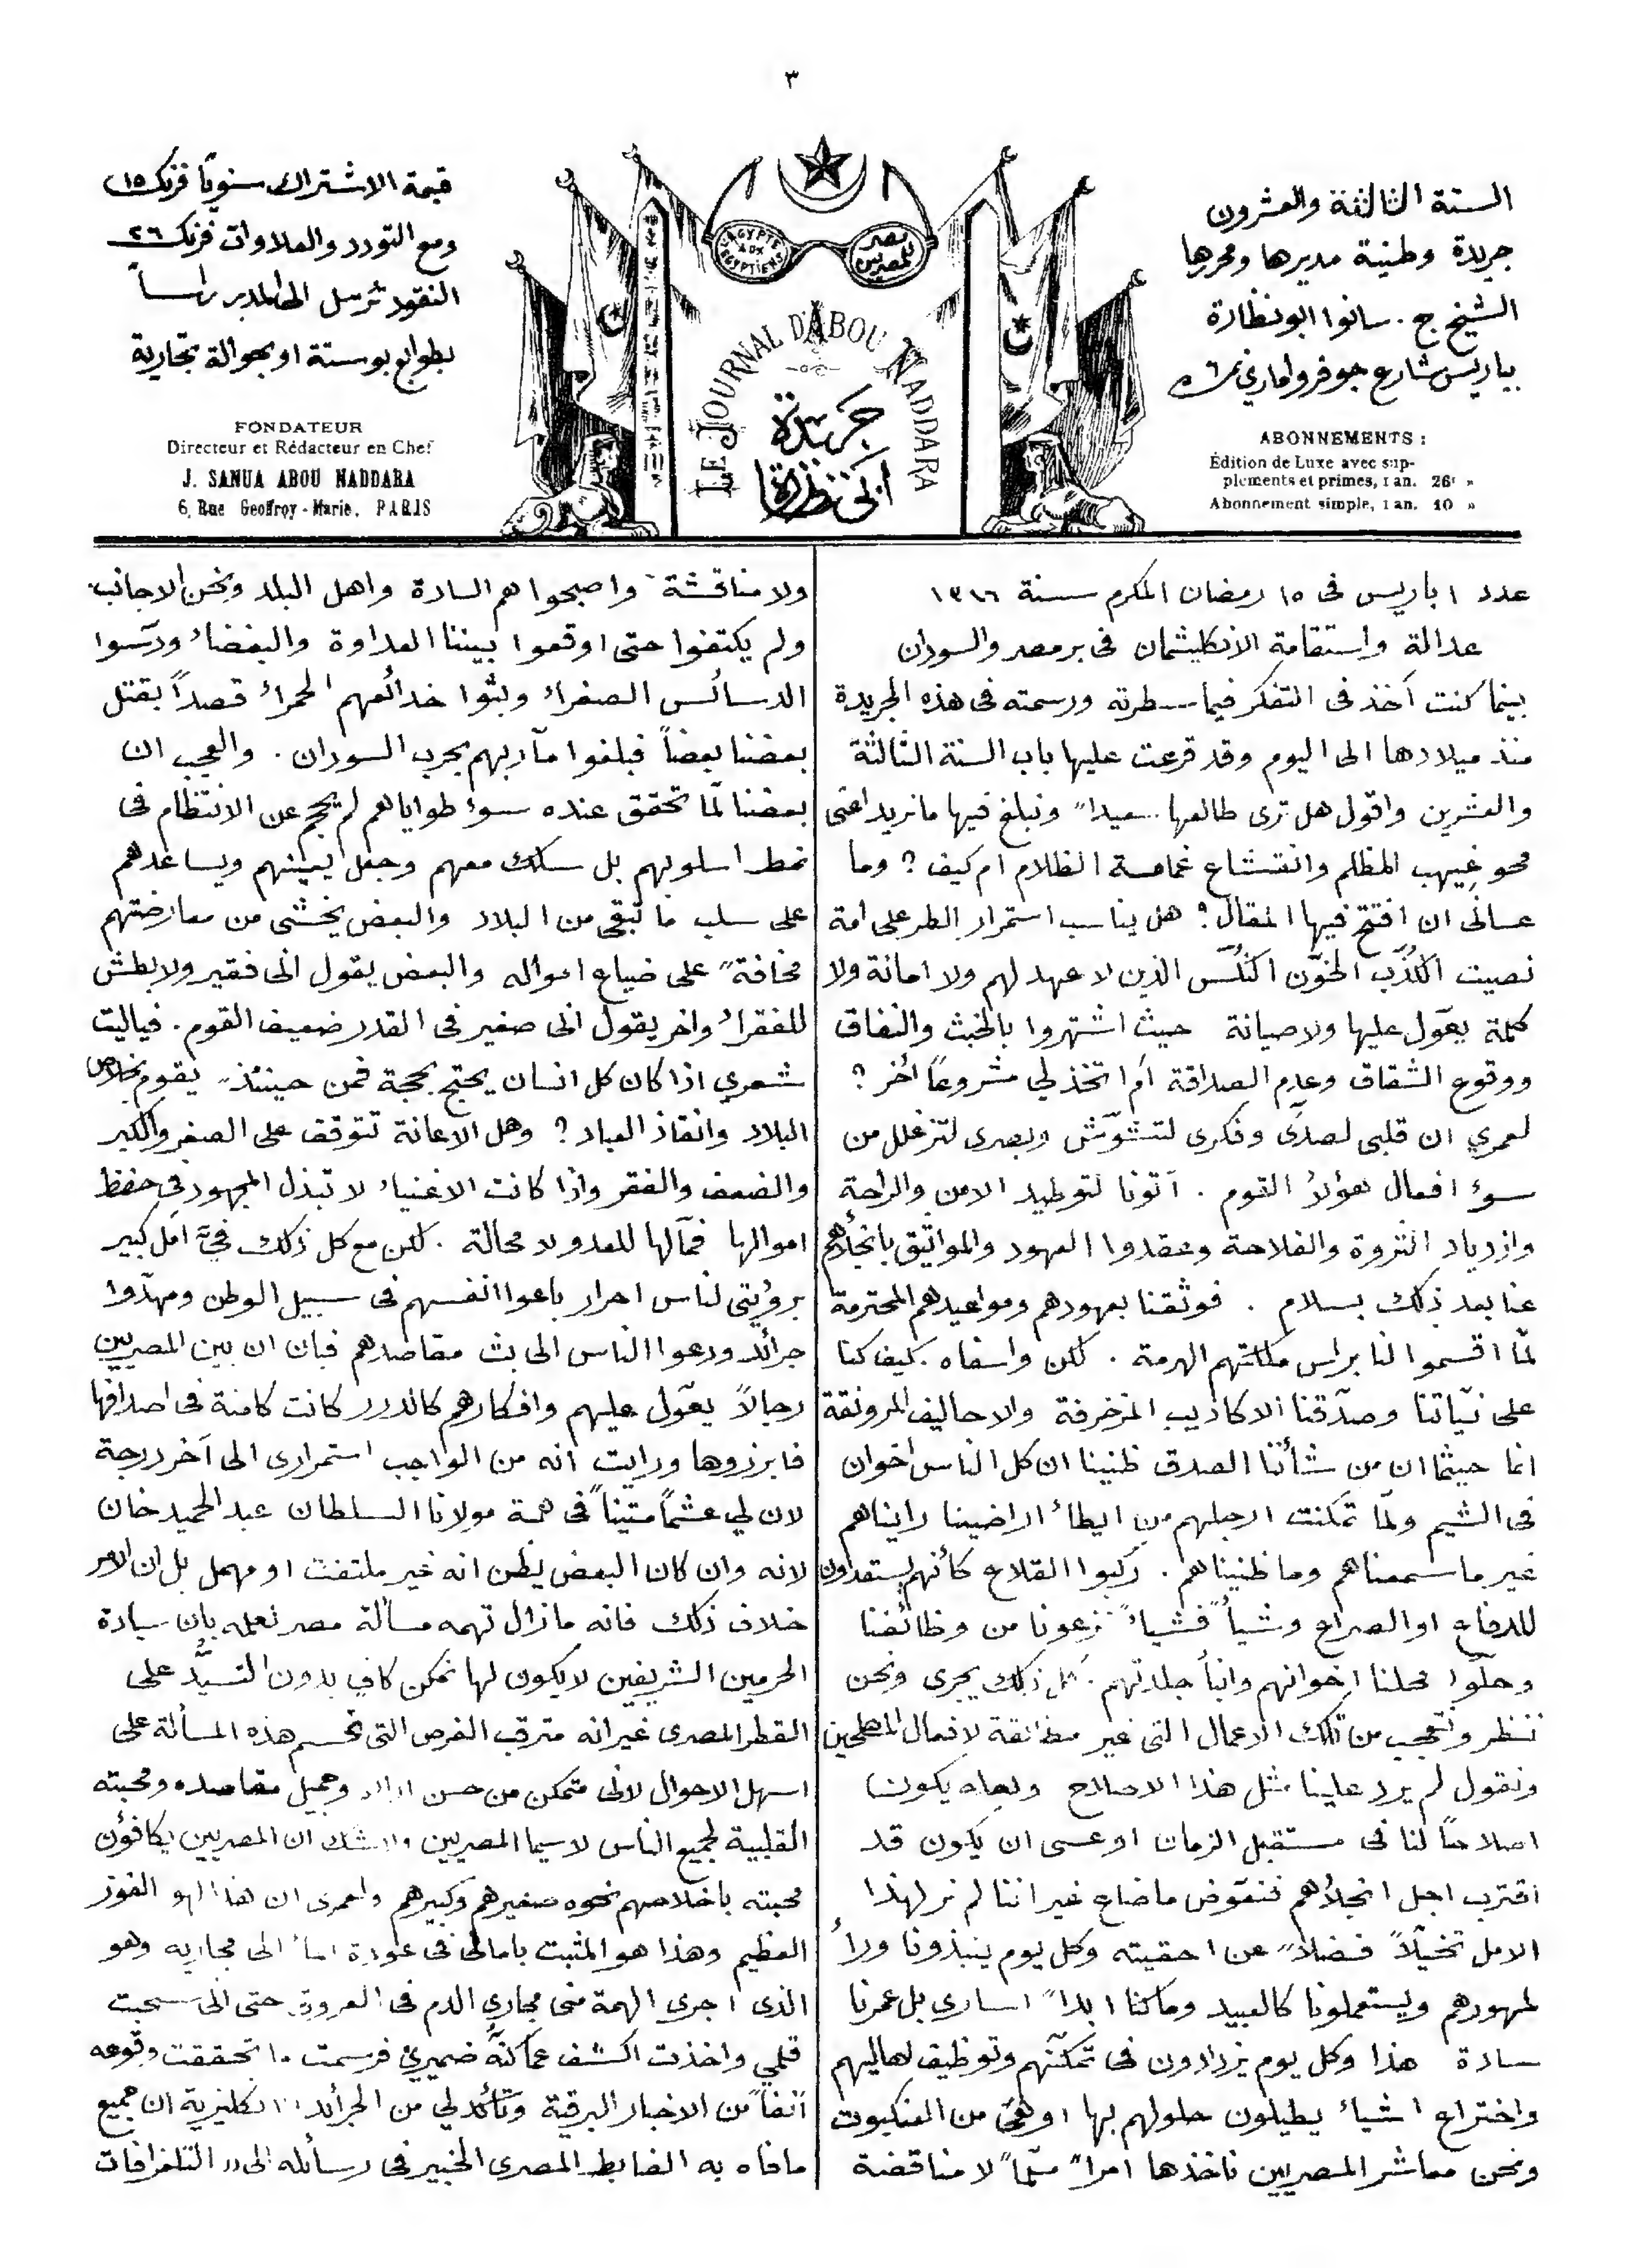 ٣
السنة الثالثة والعشرون
جريدة وطنية مديرها ومحررها
الشيخ ج . سانوا ابو نظارة
بباريس شارع جوفروا ماري نمرة
ABONNEMENTS :
Édition de Luxe avec sup-
pléments et primes, 1 an. 26f »
Abonnement simple, 1 an. 10 »
L'EGYPTE AUX EGYPTIENS
مصر للمصريين
LE JOURNAL D'ABOU NADDARA
جريدة
ابي نظارة
قيمة الاشتراك سنويّا فرنك ١٥
ومع التورد والعلاوات فرنك ٢٦
النقود ترسل الى المدير راساً
بطوابع بوستة او بحوالة تجارية
FONDATEUR
Directeur et Rédacteur en Chef
J. SANUA ABOU NADDARA
6, Rue Geoffroy-Marie, PARIS
عدد ١ باريس فى ١٥ رمضان المكرم سنة ١٣١٦
عدالة واستقامة الانكليشمان فى بر مصر والسودان
بينما كنت آخذ فى التفكر فيما سطرته ورسمته فى هذه الجريدة
منذ ميلادها الى اليوم وقد قرعت عليها باب السنة الثالثة
والعشرين واقول هل ترى طالعها سعيداً ونبلغ فيها ما نريد اعنى
محو غيهب المظلم وانقشاع غمامة الظلام ام كيف ؟ وما
عسانى ان افتتح فيها المقال ؟ هل يناسب استمرار الطر على امة
نصيت الكذّب الخوّن النكّس الذين لا عهد لهم ولا امانة ولا
كلمة يعوّل عليها ولا صيانة حيث اشتهروا بالخبث والنفاق
ووقوع الشقاق وعدم الصداقة أم اتخذ لى مشروعاً آخر ؟
لعمري ان قلبى لصدى وفكرى لتشوّش وبصرى لتزغلل من
سوء افعال هؤلاء القوم . آتونا لتوطيد الامن والراحة
وازدياد الثروة والفلاحة وعقدوا العهود والمواثيق بانجلاهم
عنا بعد ذلك بسلام . فوثقنا بعهودهم ومواعيدهم المحترمة
لمّا اقسموا لنا براس ملكتهم الهرمة . لكن واسفاه . كيف كنا
على نيّاتنا وصدّقنا الاكاذيب المزخرفة والاحاليف المرونقة
انما حيثما ان من شأننا الصدق ظنينا ان كل الناس اخوان
فى الشيم ولمّا تمكنت ارجلهم من ايطاء اراضينا رايناهم
غير ما سمعناهم وما ظنيناهم . ركبوا القلاع كأنهم يستعدون
للدفاع او الصراع وشيأً فشيأً نزعونا من وظائفنا
وحلّوا محلنا اخوانهم وابناء جلدتهم . كل ذلك يجرى ونحن
ننظر ونتعجب من تلك الاعمال التى غير مطابقة لافعال المصلحين
ونقول لم يرد علينا مثل هذا الاصلاح ولعله يكون
اصلاحاً لنا فى مستقبل الزمان او عسى ان يكون قد
اقترب اجل انجلاهم فنعوّض ما ضاع غير اننا لم نر لهذا
الامل تخيّلاً فضلاً عن احقيته وكل يوم ينبذونا وراء
ظهورهم ويستعملونا كالعبيد وما كنا ابداً اسارى بل عمرنا
سادة هذا وكل يوم يزدادون فى تمكنهم وتوظيف اهاليهم
واختراع اشياء يطيلون حلولهم بها اوهى من العنكبوت
ونحن معاشر المصريين ناخذها امراً مسلّماً لا مناقضة
ولا مناقشة واصبحوا هم السادة واهل البلد ونحن الاجانب
ولم يكتفوا حتى اوقعوا بيننا العداوة والبغضاء ودسّوا
الدسائس الصفراء وبثّوا خدائعهم الحمراء قصداً بقتل
بعضنا بعضاً فبلغوا مآربهم بحرب السودان . والعجب ان
بعضنا لمّا تحقق عنده سوء طواياهم لم يحجم عن الانتظام فى
نمط اسلوبهم بل سلك معهم وجعل يعينهم ويساعدهم
على سلب ما تبقى من البلاد والبعض يخشى من معارضتهم
مخافةً على ضياع امواله والبعض يقول انى فقير ولا بطش
للفقراء واخر يقول انى صغير فى القدر ضعيف القوم . فياليت
شعري اذا كان كل انسان يحتج بحجة فمن حينئذ يقوم بخلاص
البلاد وانقاذ العباد ؟ وهل الاعانة تتوقف على الصغر والكبر
والضعف والفقر واذا كانت الاغنياء لا تبذل المجهود فى حفظ
اموالها فمآلها للعدو لا محالة . لكن مع كل ذلك فىّ امل كبير
برؤيتى لناس احرار باعوا انفسهم فى سبيل الوطن ومهدّوا
جرائد ودعوا الناس الى بث مقاصدهم فبان ان بين المصريين
رجالاً يعوّل عليهم وافكارهم كالدرر كانت كامنة فى اصدافها
فابرزوها ورايت انه من الواجب استمرارى الى آخر درجة
لان لي عشماً متيناً فى همة مولانا السلطان عبد الحميد خان
لانه وان كان البعض يظن انه غير ملتفت او مهمل بل ان الامر
خلاف ذلك فانه ما زال تهمه مسألة مصر لعلمه بان سيادة
الحرمين الشريفين لا يكون لها تمكن كاف بدون التسيّد على
القطر المصرى غير انه مترقب الفرص التى تحسم هذه المسألة على
اسهل الاحوال لانى متمكن من حسن وجميل مقاصده ومحبته
القلبية لجميع الناس لا سيما المصريين ولا شك ان المصريين يكافؤن
محبته باخلاصهم نحوه صغيرهم وكبيرهم ولعمرى ان هذا لهو الفوز
العظيم وهذا هو المثبت بامالى فى عودة الماء الى مجاريه وهو
الذى اجرى الهمة منى مجارى الدم فى العروق حتى انى سحبت
قلمى واخذت اكشف عما كنّه ضميرى فرسمت ما تحققت وقوعه
آنفاً من الاخبار البرقية وتأكد لي من الجرائد الانكليزية ان جميع
ما فاه به الضابط المصرى الخبير فى رسائله الى التلغرافات